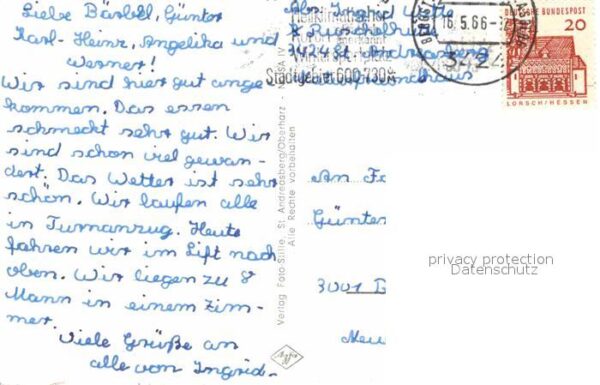 Liebe Bärbell, Günter
Karl-Heinz, Angelika und
Werner!
Wir sind hier gut ange-
kommen. Das essen
schmeckt sehr gut. Wir
sind schon viel gewan-
dert. Das Wetter ist sehr
schön. Wir laufen alle
in Turnanzug. Heute
fahren wir im Lift nach
oben. Wir liegen zu 8
Mann in einem Zim-
mer.
Viele Grüße an
alle von Ingrid.
Abs. Ingrid
3424 St. Andreasberg
Heilklimatischer
Kurort
Wintersportplatz
Stadtgebiet 600-730
16.5.66
3424
DEUTSCHE BUNDESPOST
20
LORSCH/HESSEN
Verlag Foto-Stille, St. Andreasberg/Oberharz
Alle Rechte vorbehalten
Agfa
An Fa
Günter
3001 B
privacy protection
Datenschutz